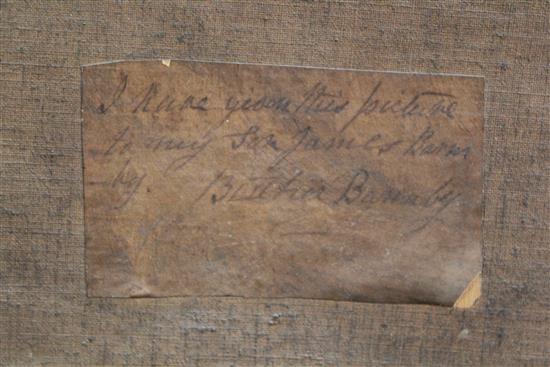 I have given this picture
to my Son James Barn
by. Barnaby